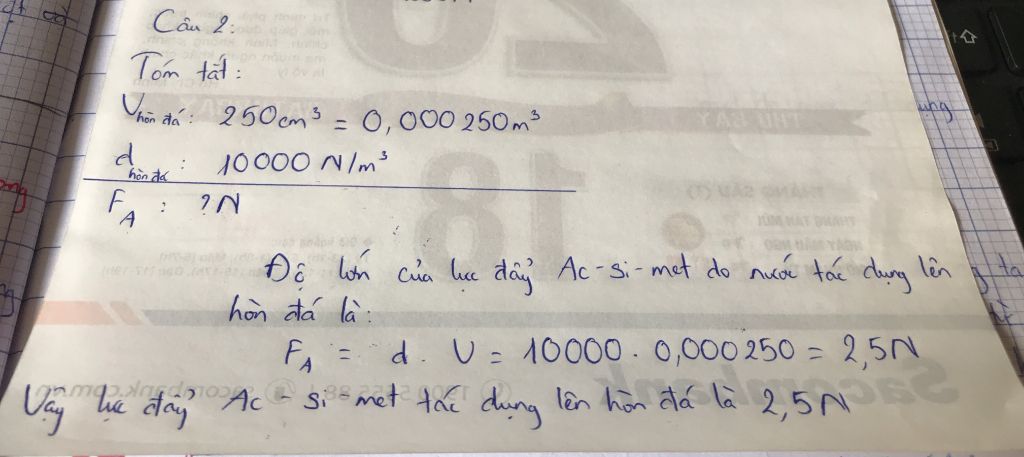 Câu 2:
Tóm tắt:
V hòn đá: 250cm³ = 0,000250m³
d hòn đá: 10000 N/m³
F_A : ? N
Độ lớn của lực đẩy Ac-si-met do nước tác dụng lên
hòn đá là:
F_A = d. V = 10000. 0,000250 = 2,5N
Vậy lực đẩy Ac-si-met tác dụng lên hòn đá là 2,5N